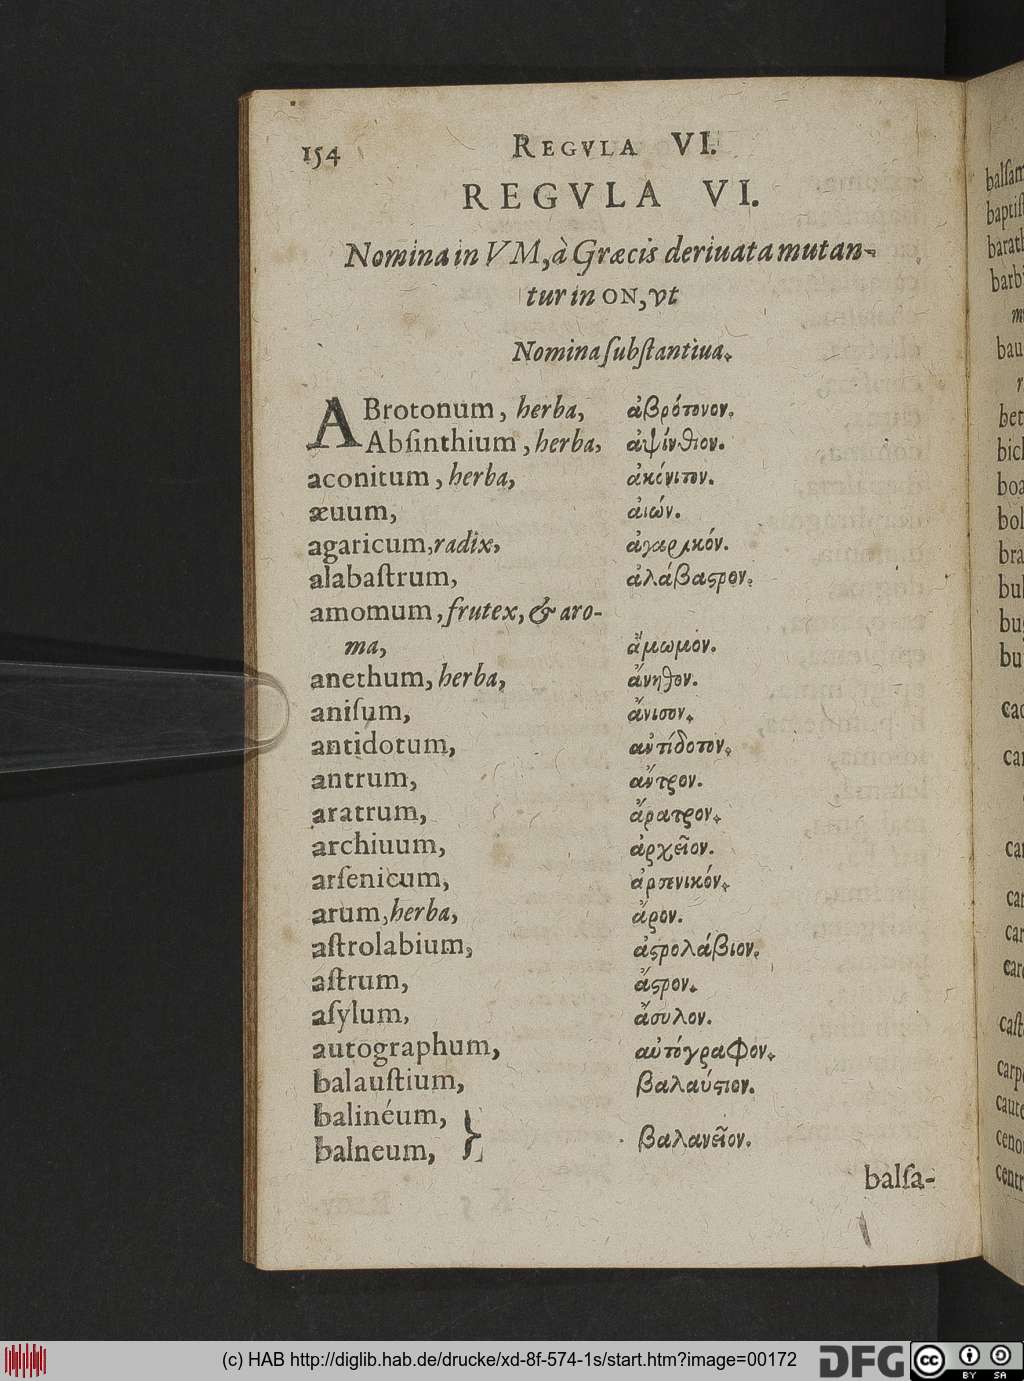 154 REGVLA VI.
REGVLA VI.
Nomina in VM, à Græcis deriuata mutan-
tur in ON, vt
Nomina ſubſtantiua.
ABrotonum, herba, ἀβρότονον.
Abſinthium, herba, ἀψίνθιον.
aconitum, herba, ἀκόνιτον.
æuum, αἰών.
agaricum, radix, ἀγαρικόν.
alabaſtrum, ἀλάβαϛρον.
amomum, frutex, & aro-
ma, ἄμωμον.
anethum, herba, ἄνηθον.
aniſum, ἄνισον.
antidotum, ἀντίδοτον.
antrum, ἄντρον.
aratrum, ἄρατρον.
archiuum, ἀρχεῖον.
arſenicum, ἀρσενικόν.
arum, herba, ἄρον.
aſtrolabium, ἀϛρολάβιον.
aſtrum, ἄϛρον.
aſylum, ἄσυλον.
autographum, αὐτόγραφον.
balauſtium, βαλαύϛιον.
balinéum,
balneum, } βαλανεῖον.
balſa-
balſam
baptiſ
barath
barb
m
bau
bet
boa
bol
bra
(c) HAB http://diglib.hab.de/drucke/xd-8f-574-1s/start.htm?image=00172 DFG cc BY SA